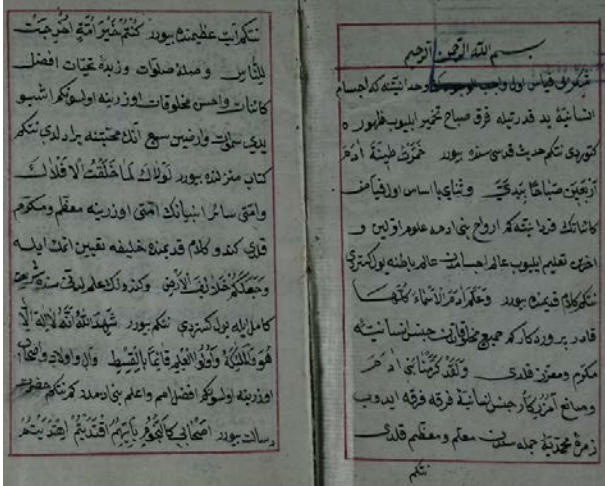 بسم الله الرحمن الرحيم
شكر بى قياس اول واجب الوجودك وحدانيتنه كه اجسام
انسانية يد قدرتيله فرق صباح تخمير ايليوب ظهوره
كتوردى نتكم حديث قدسى سنده بيورر خمرت طينة آدم
اربعين صباحا بيدى وثناى با اساس اول فياض
كائناتك فردانيتنه كم ارواح بنى آدمه علوم اولين و
آخرين تعليم ايليوب عالم اجسامدن عالم باطنه يول كستردى
نتكم كلام قديمنده بيورر وعلم آدم الاسماء كلها
قادر پروردكار كم جميع مخلوقاتن جنس انسانيته
مكرم ومعزز قلدى ولقد كرمنا بنى آدم
وصانع آفريدكار جنس انسانية فرقه فرقه ايدوب
زمرۀ محمدية جمله سندن معلم ومعظم قلدى
نتكم
نتكم آيت عظيمنده بيورر كنتم خير امة اخرجت
للناس وصلۀ صلوات وزبدۀ تحيات افضل
كائنات واحسن مخلوقات اوزرينه اولسونكم اشبو
يدى سموات وارضين سبع انك محبتنه يرادلدى نتكم
كتاب منزلنده بيورر لولاك لما خلقت الافلاك
وامتى سائر انبيانك امتى اوزرينه معظم ومكرم
قلدى كندو كلام قديمنده خليفه تعيين اتمك ايله
وجعلكم خلائف الارض وكندونك علم لدنى سنده
كامل ايله يول كستردى نتكم بيورر شهد الله انه لا اله الا
هو والملائكة واولوا العلم قائما بالقسط وآل واولاد واصحاب
اوزرينه اولسونكم افضل امم واعلم بنى آدمدر كم نتكم حضرت
رسالت بيورر اصحابى كالنجوم بايهم اقتديتم اهتديتم